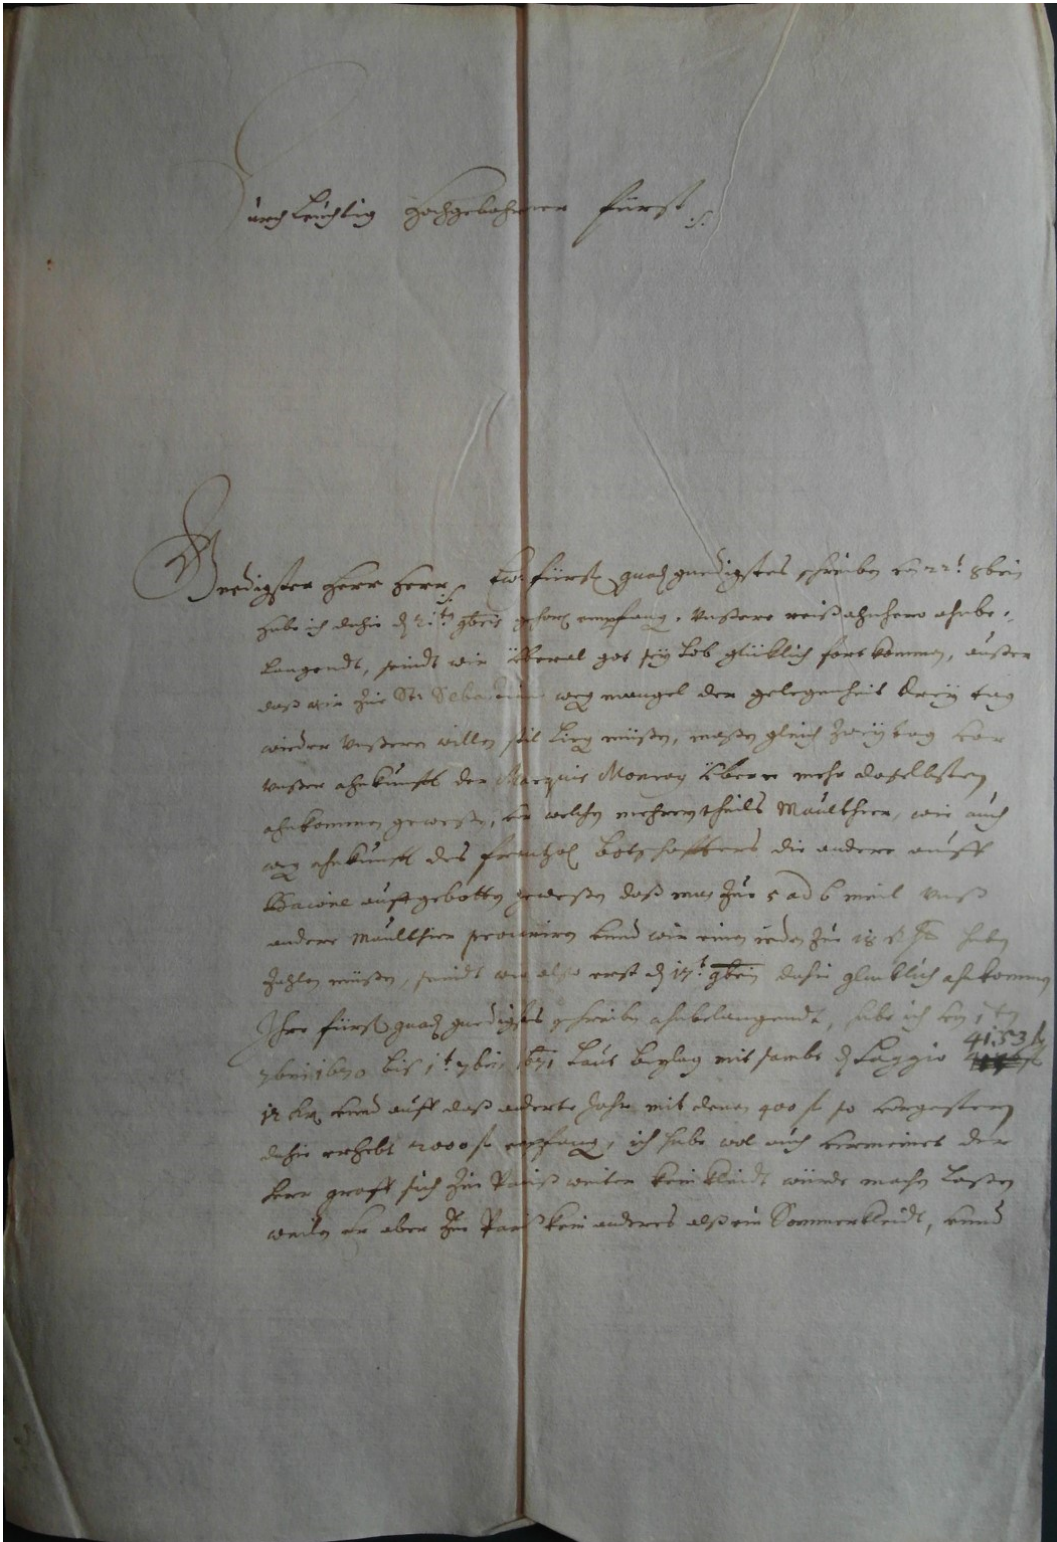 Durchleüchtig Hochgebohrner Fürst
Gnedigster Herr Herr Ew fürstl gnad gnedigstes schreiben 22t 8bris
habe ich dahie empfang, Unßere reiß ahnhero ahnbe-
langendt, seindt wir überal got sey lob glüklich fort kommen, außer
daß wir Zue St: Sebastian weg mangel der gelegenheit dreÿ tag
wieder Unßeren willen stil lieg müßen, maßen gleich Zweÿ tag vor
Unßer ahnkunfft der Marquis daselbsten
ahnkommen geweßen, welchen mehrentheils Maulthier, wie auch
weg ahnkunfft des frantzos Botschaffters die andere auff
Baione auffgebotten geweßen daß man Zue 5 ad 6 meil Unß
andere Maulthier vnnd wir einen ieden Zue 18 haben
Zahlen müßen, seindt wir also erst d 17t 9bris dahie glücklich ahnkommen
Ihre fürstl gnad gnedigstes schreiben ahnbelangendt, habe ich den 1ten
7bris 1670 bis 1t 7bris 1671 laut beylag mit sambt d Laggio 4153 fl
12 kr vnnd auff daß anderte Jahr mit denen 400 fl so vorgestern
dahie erhebt 2000 fl empfang, ich habe wol auch vermeinet der
herr graff sich Zue Pariß weiter kein kleidt würde machen laßen
weilen er aber Zue Pariß kein anderes alß ein Sommerkleidt, vnnd